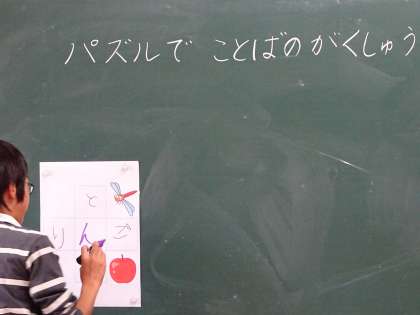 パズルで ことばのがくしゅう
と
りんご